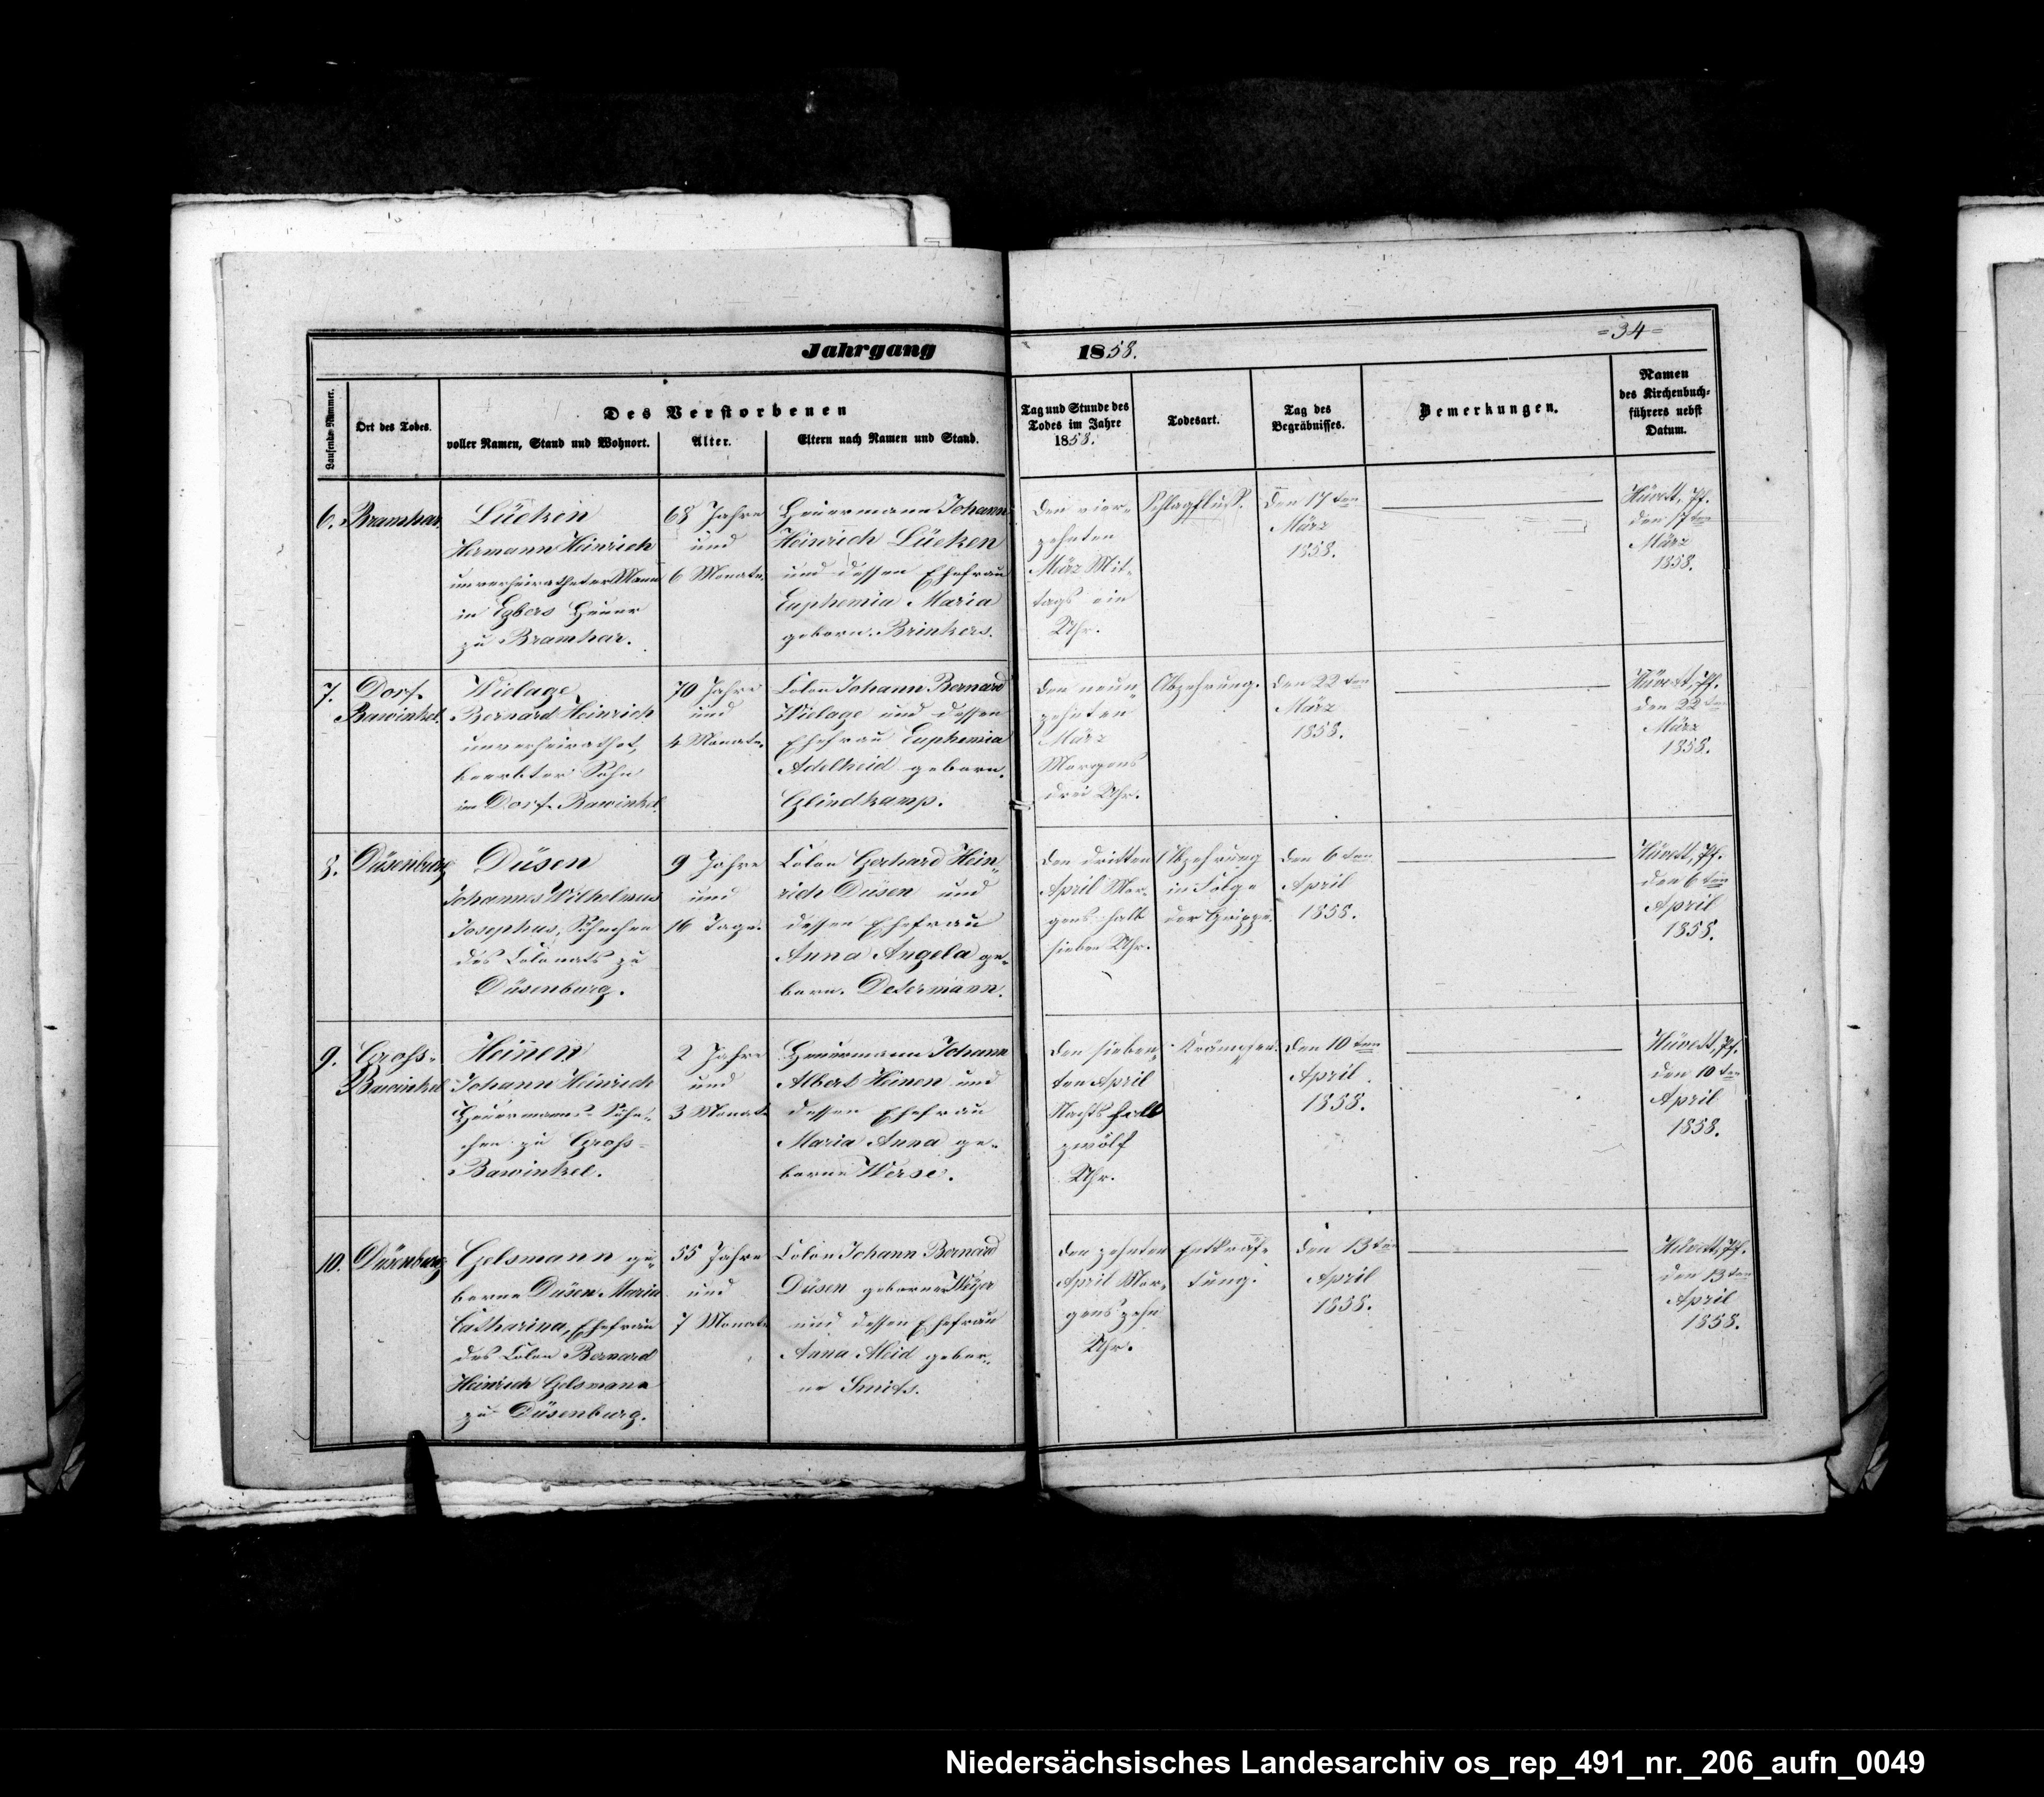 Jahrgang 1858.
=34=
Laufende Nummer.
Ort des Todes.
Des Verstorbenen
voller Namen, Stand und Wohnort.
Alter.
Eltern nach Namen und Stand.
Tag und Stunde des
Todes im Jahre
1858.
Todesart.
Tag des
Begräbnisses.
Bemerkungen.
Namen
des Kirchenbuch-
führers nebst
Datum.
6.
Bramhar.
Lücken
Hermann Heinrich
unverheiratheter Mann
in Egbers Heuer
zu Bramhar.
68 Jahre
und
6 Monate.
Heuermann Johann
Heinrich Lücken
und dessen Ehefrau
Euphemia Maria
geborn. Brinkers.
den vier-
zehnten
März Mit-
tags ein
Uhr.
Schlagfluß.
den 17ten
März
1858.
Pf.
den 17ten
März
1858.
7.
Dorf-
Bawinkel.
Wielage
Bernard Heinrich
unverheirathet,
beerbter Sohn
im Dorf-Bawinkel.
70 Jahre
und
4 Monate.
Colon Johann Bernard
Wielage und dessen
Ehefrau Euphemia
Adelheid geborn.
Glindkamp.
den neun-
zehnten
März
Morgens
drei Uhr.
Abzehrung.
den 22ten
März
1858.
Pf.
den 22ten
März
1858.
8.
Düsenburg
Düsen
Johannes Wilhelmus
Josephus, Söhnchen
des Colonats zu
Düsenburg.
9 Jahre
und
16 Tage.
Colon Gerhard Hein-
rich Düsen und
dessen Ehefrau
Anna Angela ge-
born. Determann.
den dritten
April Mor-
gens halb
sieben Uhr.
Abzehrung
in Folge
der Grippe.
den 6ten
April
1858.
Pf.
den 6ten
April
1858.
9.
Gross-
Bawinkel
Heinen
Johann Heinrich
Heuermanns-Söhn-
chen zu Gross-
Bawinkel.
2 Jahre
und
3 Monate
Heuermann Johann
Albert Heinen und
dessen Ehefrau
Maria Anna ge-
borne Werse.
den sieben-
ten April
Nachts halb
zwölf
Uhr.
Krämpfen.
den 10ten
April
1858.
Pf.
den 10ten
April
1858.
10.
Düsenburg
Gelsmann ge-
borne Düsen Maria
Catharina, Ehefrau
des Colon Bernard
Heinrich Gelsmann
zu Düsenburg.
55 Jahre
und
7 Monate
Colon Johann Bernard
Düsen geborner
und dessen Ehefrau
Anna Aleid gebor-
ne Smits.
den zehnten
April Mor-
gens zehn
Uhr.
Entkräf-
tung.
den 13ten
April
1858.
Pf.
den 13ten
April
1858.
Niedersächsisches Landesarchiv os_rep_491_nr._206_aufn_0049